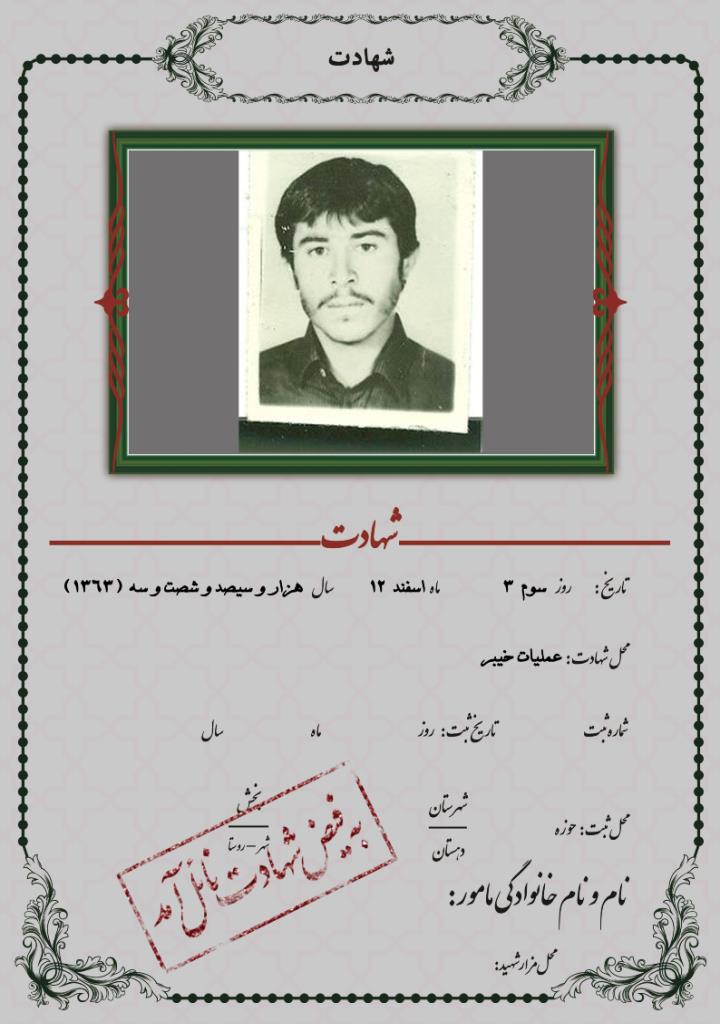 شهادت
شهادت
تاریخ: روز سوم ۳ ماه اسفند ۱۲ سال هزار و سیصد و شصت و سه (۱۳۶۳)
محل شهادت: عملیات خیبر
شماره ثبت تاریخ ثبت: روز ماه سال
محل ثبت: حوزه شهرستان بخش
دهستان شهر-روستا
به فیض شهادت نائل آمد
نام و نام خانوادگی مامور:
محل مزار شهید: